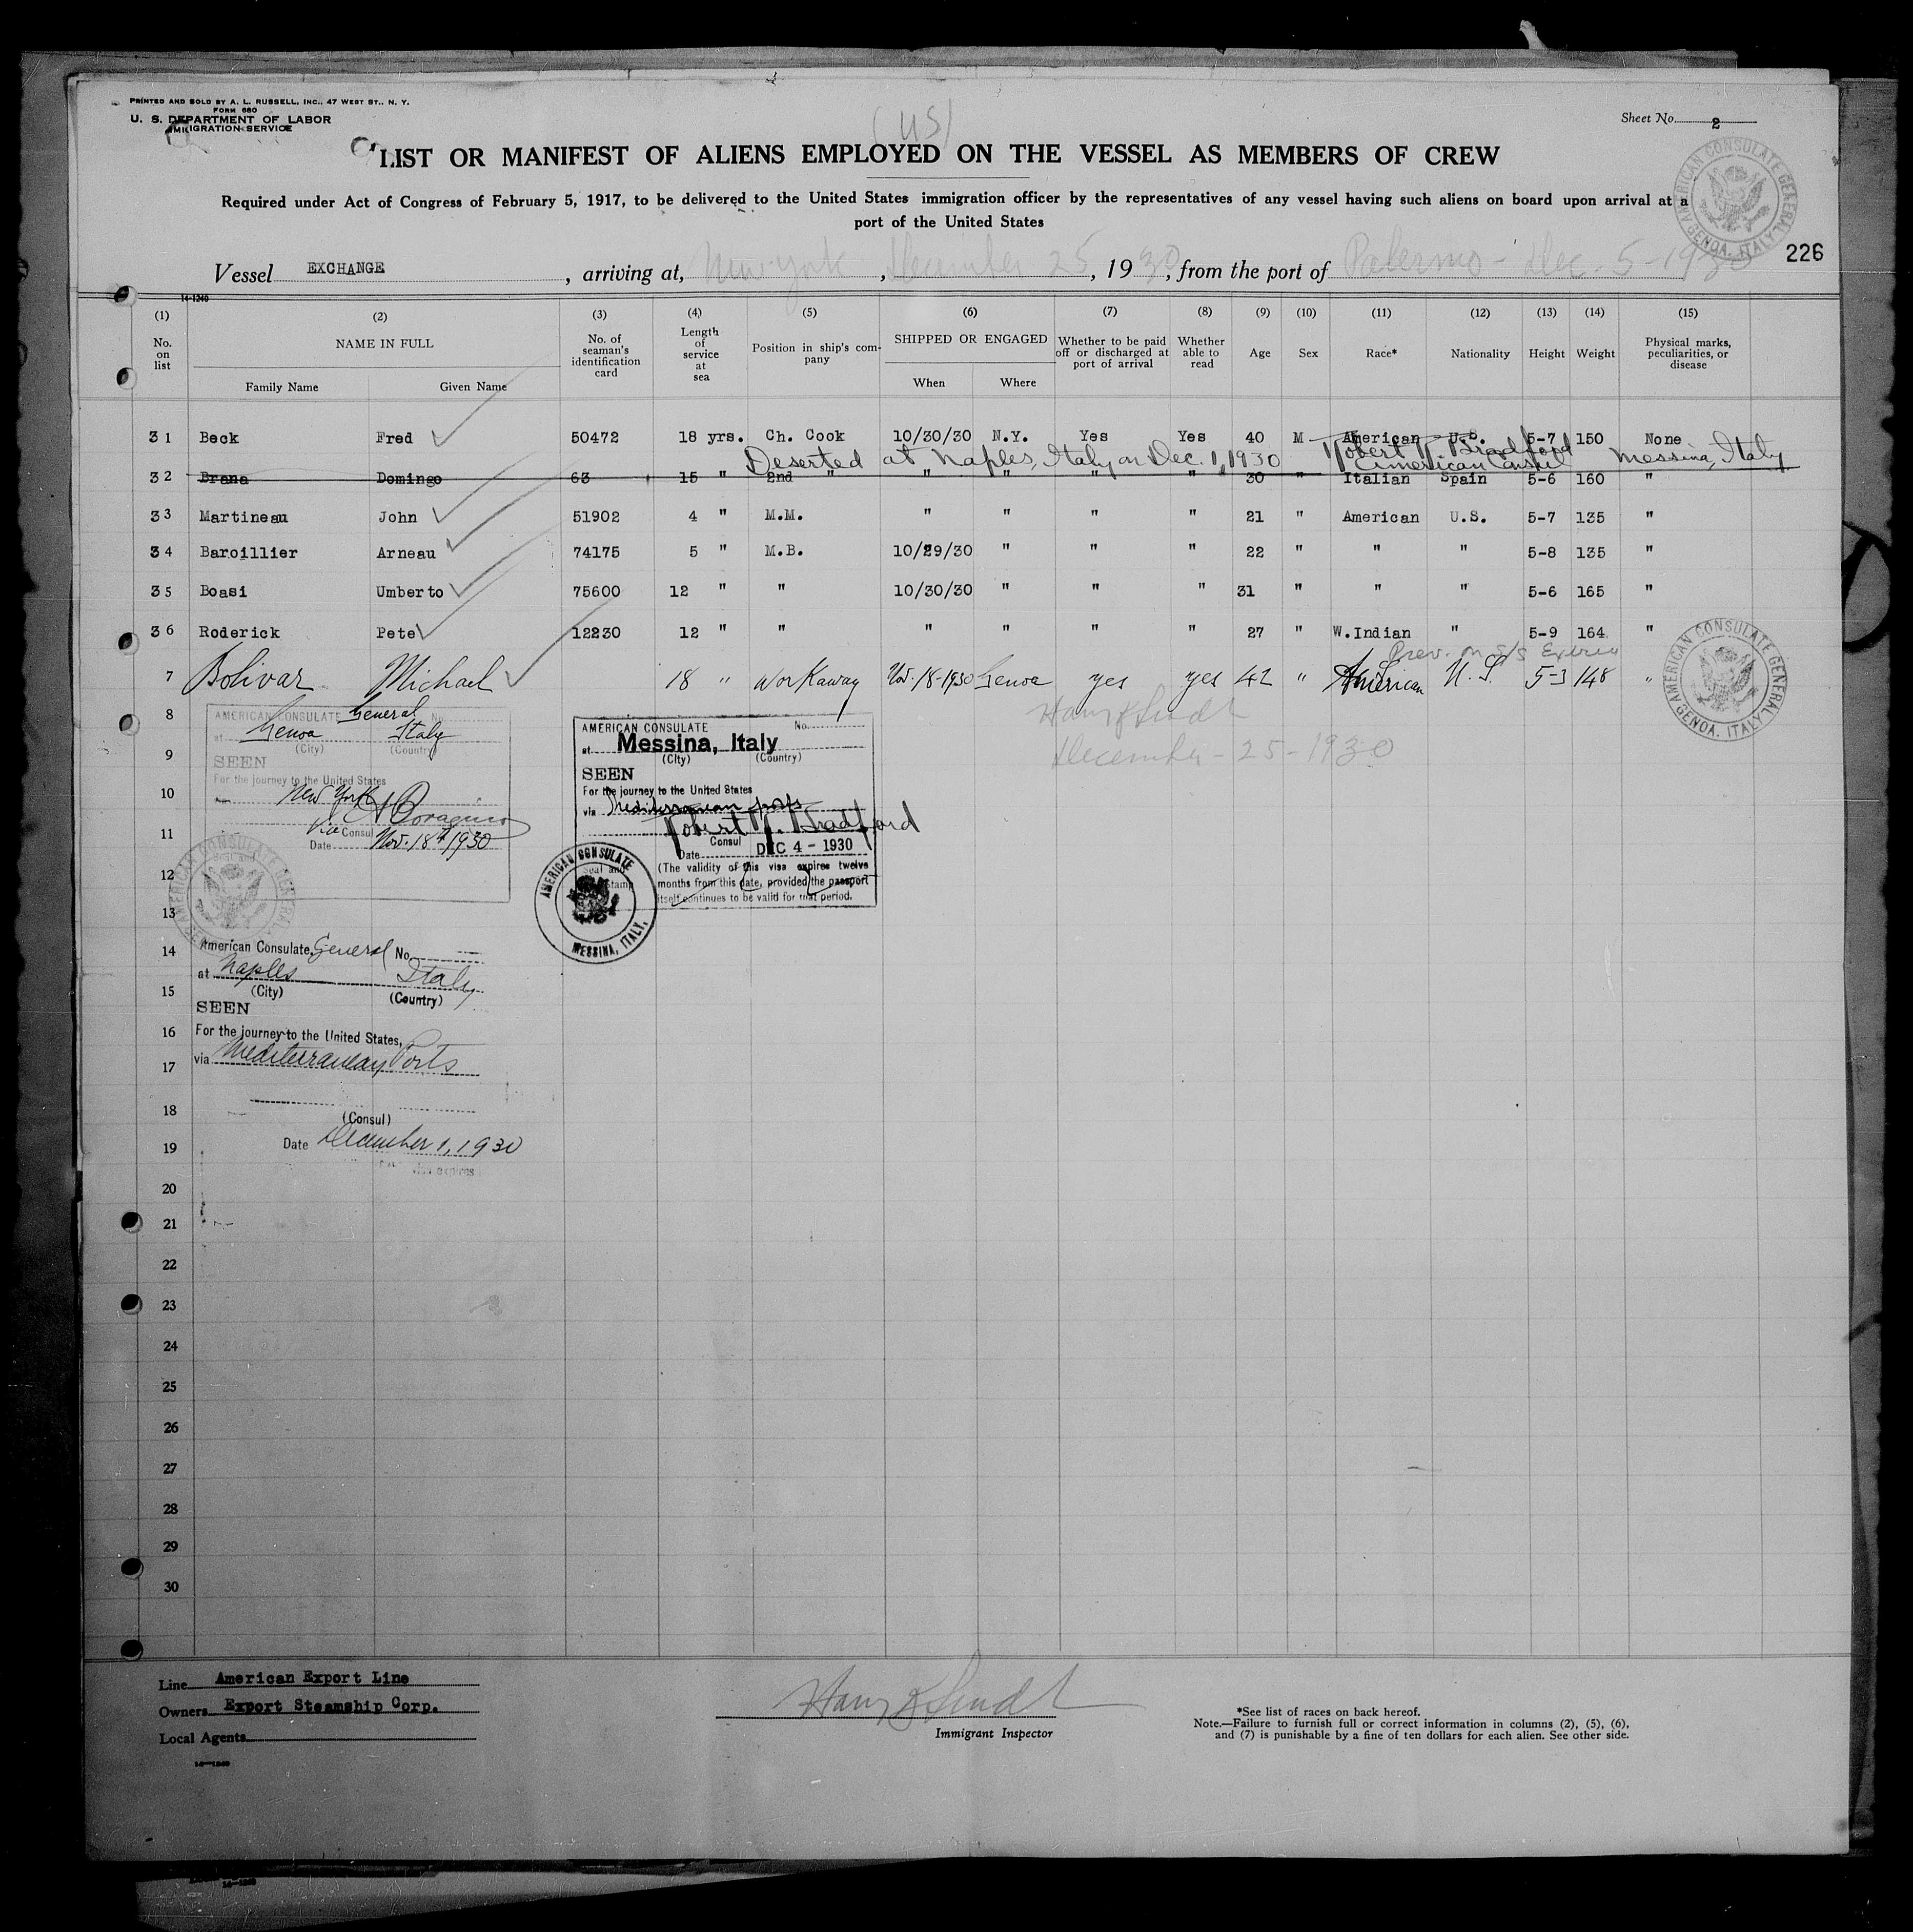 PRINTED AND SOLD BY A. L. RUSSELL, INC., 47 WEST ST., N. Y.
FORM 680
U. S. DEPARTMENT OF LABOR
IMMIGRATION SERVICE
(US)
Sheet No. 2
LIST OR MANIFEST OF ALIENS EMPLOYED ON THE VESSEL AS MEMBERS OF CREW
Required under Act of Congress of February 5, 1917, to be delivered to the United States immigration officer by the representatives of any vessel having such aliens on board upon arrival at a
port of the United States
AMERICAN CONSULATE GENERAL GENOA, ITALY
226
Vessel EXCHANGE, arriving at, New York, December 25, 1930, from the port of Palermo - Dec. 5-1930
14-1240
(1) (2) (3) (4) (5) (6) (7) (8) (9) (10) (11) (12) (13) (14) (15)
No. on list NAME IN FULL No. of seaman's identification card Length of service at sea Position in ship's company SHIPPED OR ENGAGED Whether to be paid off or discharged at port of arrival Whether able to read Age Sex Race* Nationality Height Weight Physical marks, peculiarities, or disease
Family Name Given Name When Where
31 Beck Fred 50472 18 yrs. Ch. Cook 10/30/30 N.Y. Yes Yes 40 M American U.S. 5-7 150 None
Deserted at Naples, Italy on Dec. 1, 1930 Robert R. Bradford American Consul Messina, Italy
32 Brana Domingo 63 15 " 2nd " " " " " 30 " Italian Spain 5-6 160 "
33 Martineau John 51902 4 " M.M. " " " " 21 " American U.S. 5-7 135 "
34 Baroillier Arneau 74175 5 " M.B. 10/29/30 " " " 22 " " " 5-8 135 "
35 Boasi Umberto 75600 12 " " 10/30/30 " " " 31 " " " 5-6 165 "
36 Roderick Pete 12230 12 " " " " " " 27 " W.Indian " 5-9 164 "
Prev. on S/S
7 Bolivar Michael 18 " Workaway Nov-18-1930 Genoa yes yes 42 " American U.S. 5-3 148 "
AMERICAN CONSULATE GENERAL GENOA, ITALY
December-25-1930
8
9
10
11
12
13
AMERICAN CONSULATE General No.
at Genoa Italy
(City) (Country)
SEEN
For the journey to the United States
New York
via
Consul
Date Nov. 18th 1930
AMERICAN CONSULATE No.
at Messina, Italy
(City) (Country)
SEEN
For the journey to the United States
via Mediterranean ports
Robert R. Bradford
Consul
Date DEC 4 - 1930
(The validity of this visa expires twelve
months from this date, provided the passport
itself continues to be valid for that period.
Seal and
Stamp
AMERICAN CONSULATE MESSINA, ITALY.
14
15
16
17
18
19
American Consulate General No.
at Naples Italy
(City) (Country)
SEEN
For the journey to the United States,
via Mediterranean Ports
(Consul)
Date December 1, 1930
visa expires
20
21
22
23
24
25
26
27
28
29
30
Line American Export Line
Owners Export Steamship Corp.
Local Agents
14-1240
Immigrant Inspector
*See list of races on back hereof.
Note.—Failure to furnish full or correct information in columns (2), (5), (6),
and (7) is punishable by a fine of ten dollars for each alien. See other side.